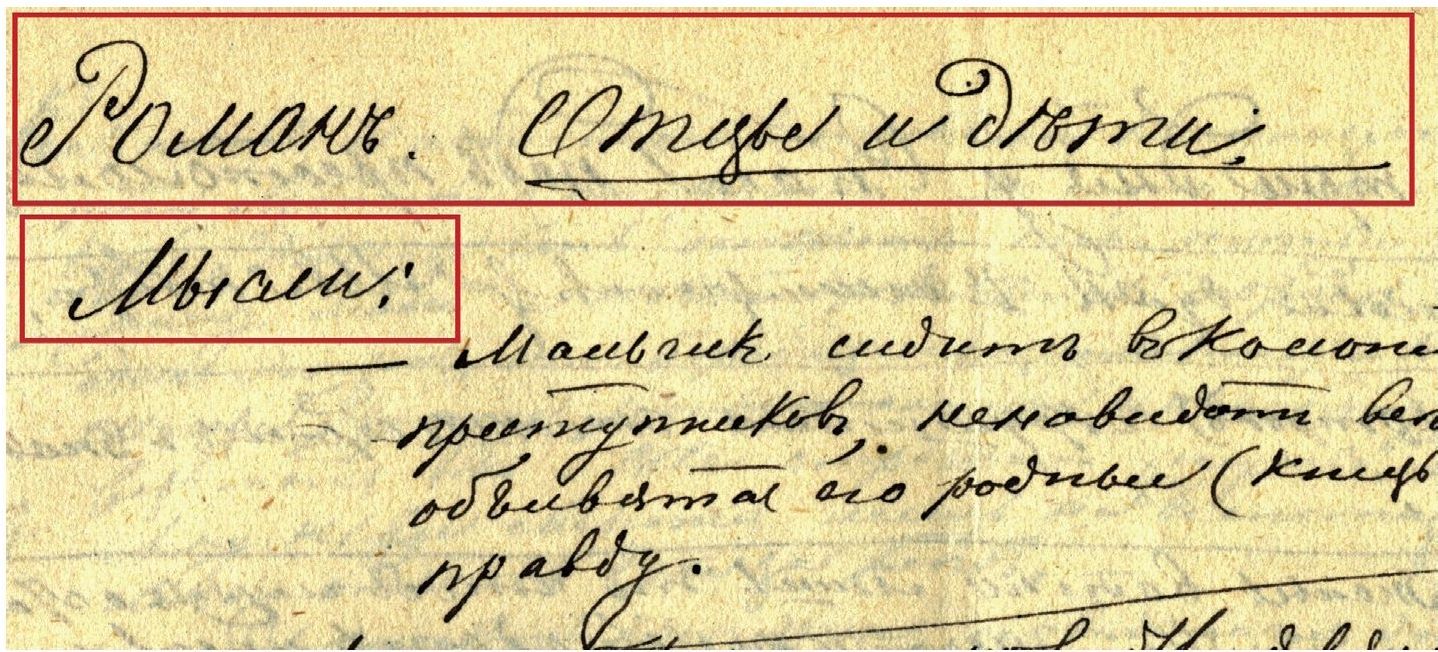 Романъ. Отцы и дѣти.
Мысли:
— Мальчик сидитъ въ Колоні
преступниковъ, ненавидитъ
объявятся его родные (князь
правду.